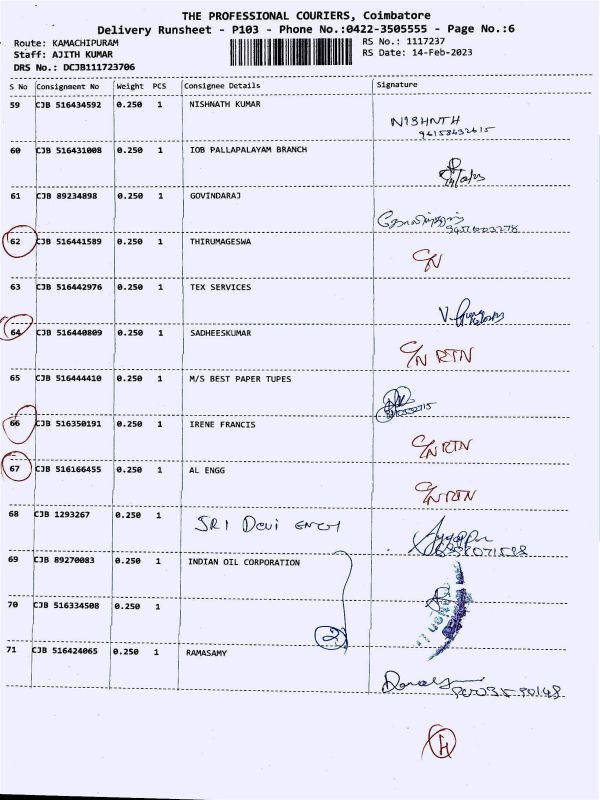 THE PROFESSIONAL COURIERS, Coimbatore
Delivery Runsheet - P103 - Phone No.:0422-3505555 - Page No.:6
Route: KAMACHIPURAM
Staff: AJITH KUMAR
DRS No.: DCJB111723706
RS No.: 1117237
RS Date: 14-Feb-2023
S No Consignment No Weight PCS Consignee Details Signature
59 CJB 516434592 0.250 1 NISHNATH KUMAR
NISHNTH
60 CJB 516431008 0.250 1 IOB PALLAPALAYAM BRANCH
61 CJB 89234898 0.250 1 GOVINDARAJ
62 CJB 516441589 0.250 1 THIRUMAGESWA
C/N
63 CJB 516442976 0.250 1 TEX SERVICES
64 CJB 516440809 0.250 1 SADHEESKUMAR
C/N RTN
65 CJB 516444410 0.250 1 M/S BEST PAPER TUPES
66 CJB 516350191 0.250 1 IRENE FRANCIS
C/N RTN
67 CJB 516166455 0.250 1 AL ENGG
C/N RTN
68 CJB 1293267 0.250 1 SRI Devi
69 CJB 89270083 0.250 1 INDIAN OIL CORPORATION
70 CJB 516334508 0.250 1
2
71 CJB 516424065 0.250 1 RAMASAMY